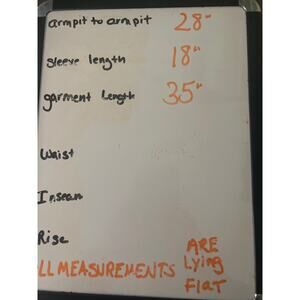 armpit to armpit 28"
sleeve length 18"
garment length 35"
Waist
Inseam
Rise
LL MEASUREMENTS ARE
Lying
Flat